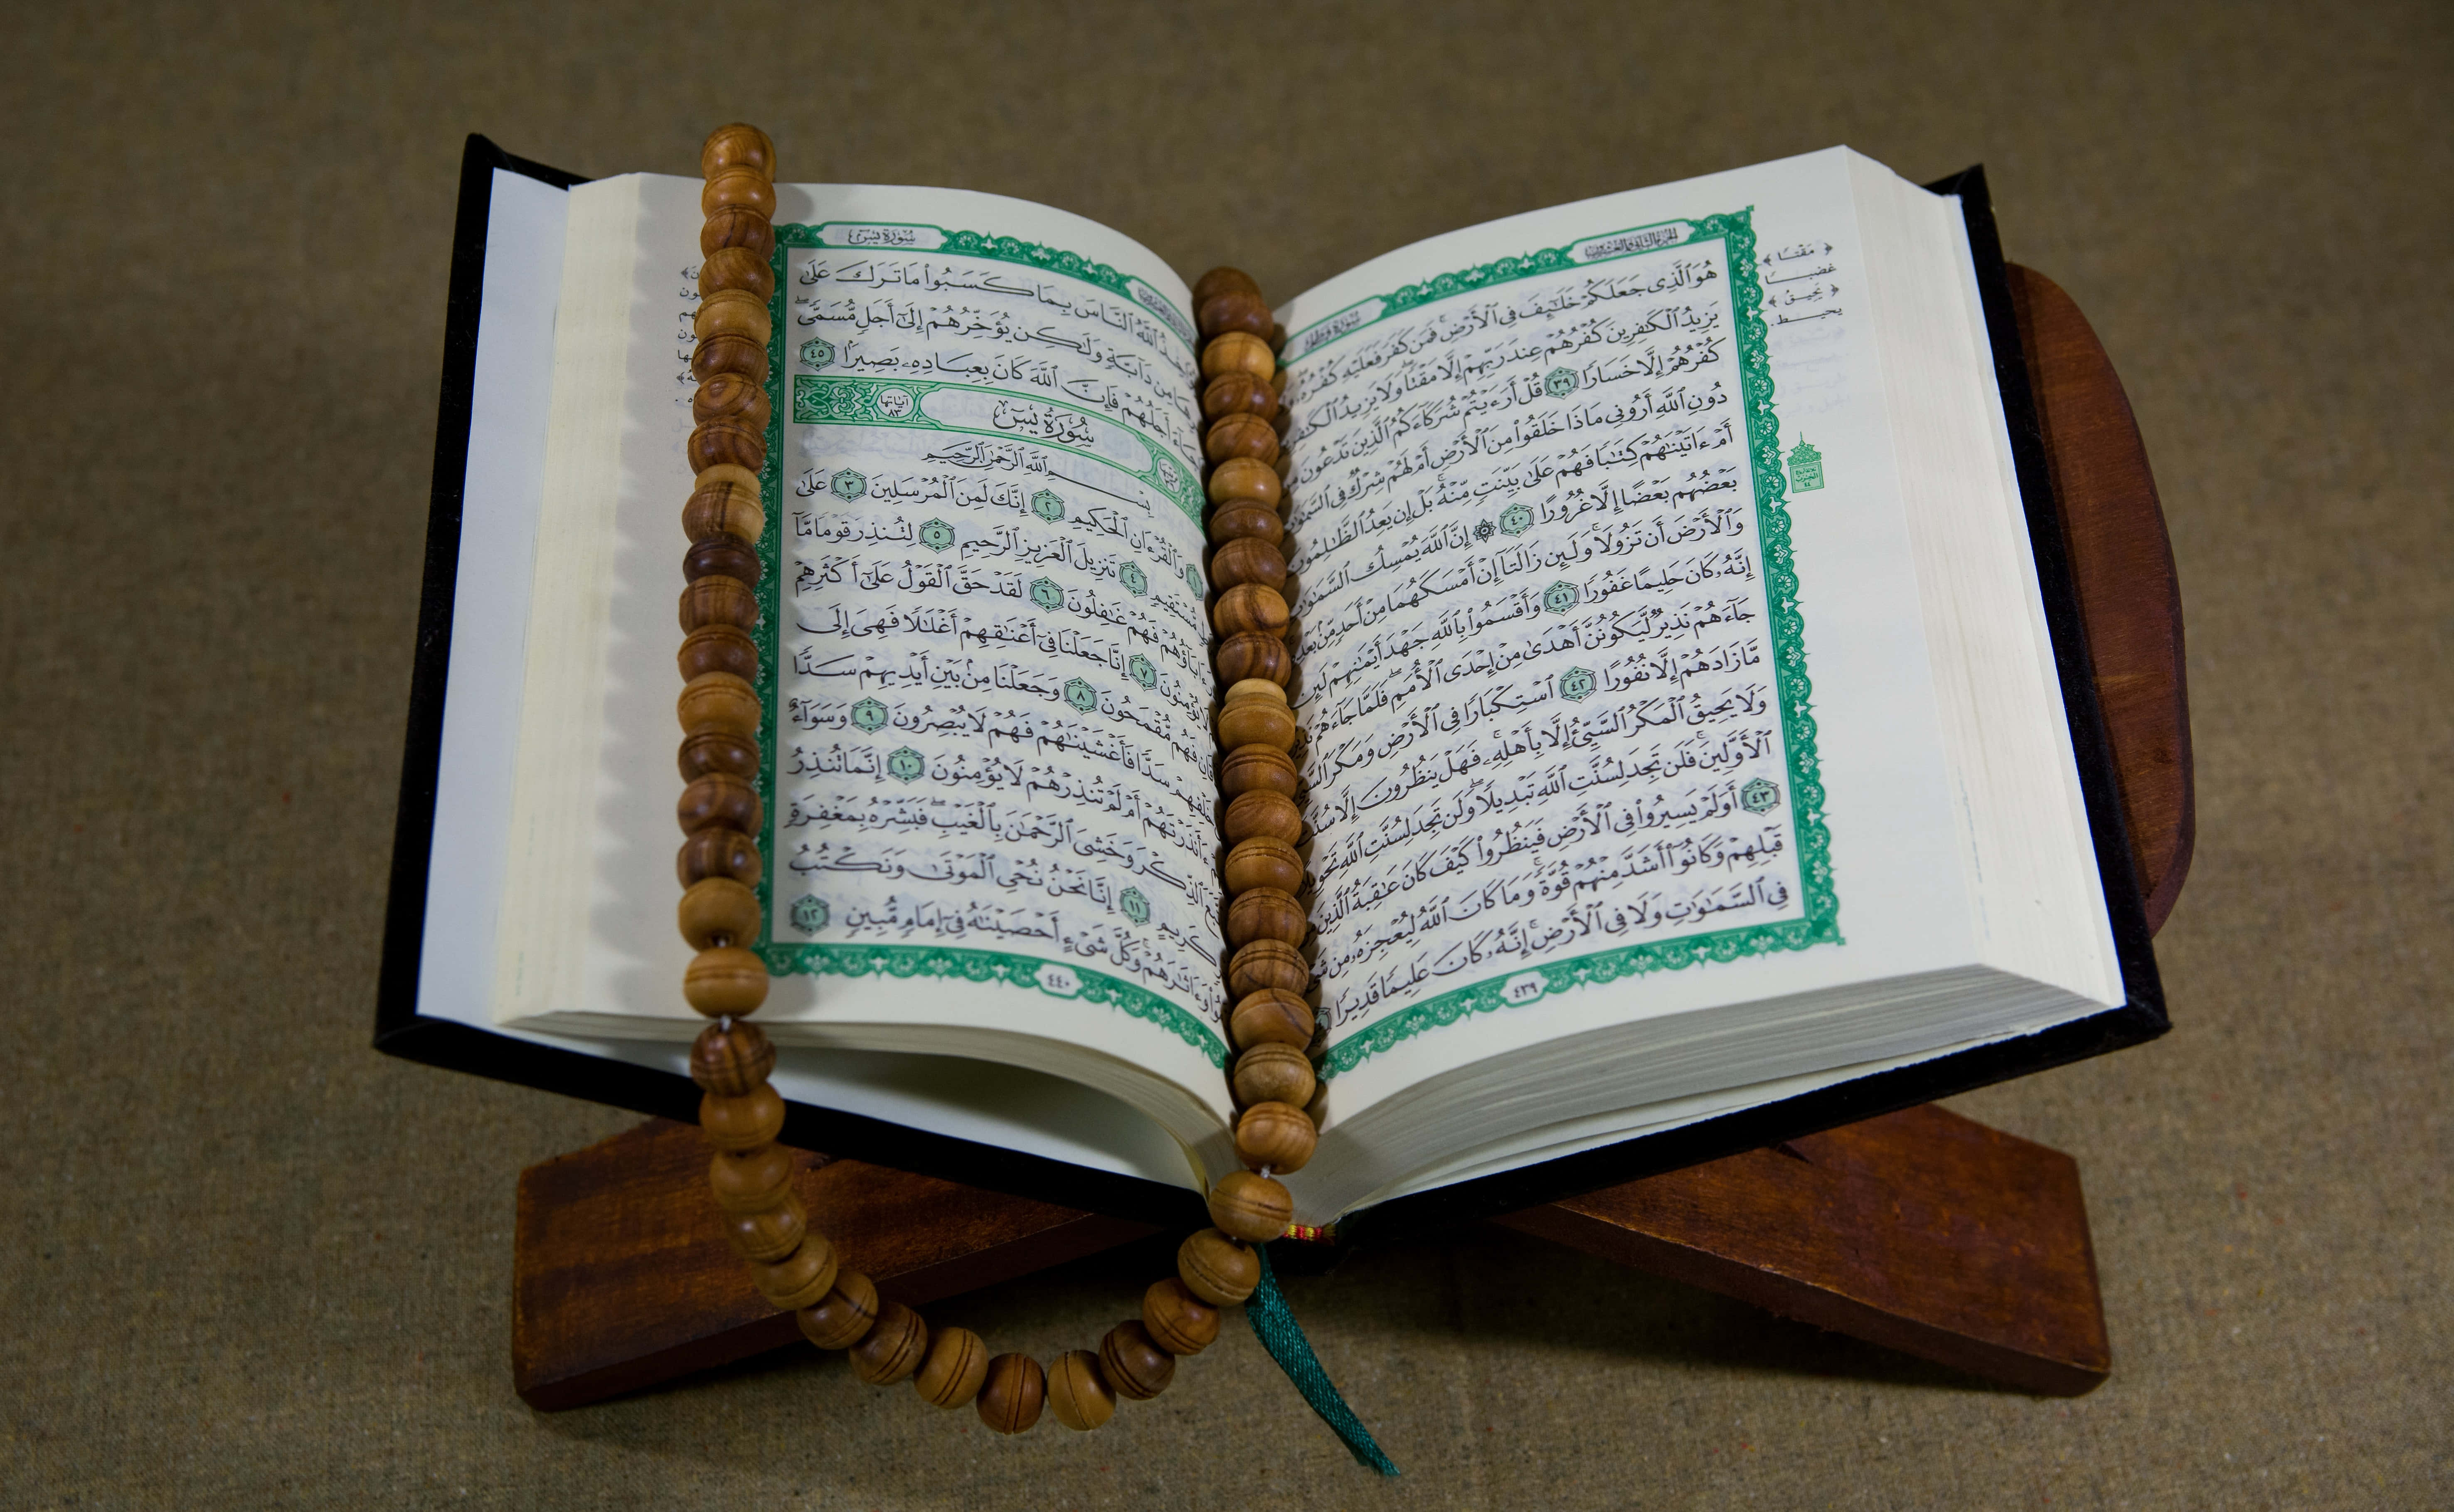 الجزء الثاني والعشرون
سورة فاطر
هُوَ الَّذِى جَعَلَكُمْ خَلَٰٓئِفَ فِى الْأَرْضِ فَمَن كَفَرَ فَعَلَيْهِ كُفْرُهُۥ
يَزِيدُ الْكَٰفِرِينَ كُفْرُهُمْ عِندَ رَبِّهِمْ إِلَّا مَقْتًا وَلَا يَزِيدُ الْكَٰفِرِينَ
كُفْرُهُمْ إِلَّا خَسَارًا ٣٩ قُلْ أَرَءَيْتُمْ شُرَكَآءَكُمُ الَّذِينَ تَدْعُونَ مِن
دُونِ اللَّهِ أَرُونِى مَاذَا خَلَقُوا۟ مِنَ الْأَرْضِ أَمْ لَهُمْ شِرْكٌ فِى السَّمَٰوَٰتِ
أَمْ ءَاتَيْنَٰهُمْ كِتَٰبًا فَهُمْ عَلَىٰ بَيِّنَتٍ مِّنْهُ بَلْ إِن يَعِدُ الظَّٰلِمُونَ
بَعْضُهُم بَعْضًا إِلَّا غُرُورًا ٤٠ ۞ إِنَّ اللَّهَ يُمْسِكُ السَّمَٰوَٰتِ
وَالْأَرْضَ أَن تَزُولَا وَلَئِن زَالَتَآ إِنْ أَمْسَكَهُمَا مِنْ أَحَدٍ مِّنۢ بَعْدِهِۦٓ
إِنَّهُۥ كَانَ حَلِيمًا غَفُورًا ٤١ وَأَقْسَمُوا۟ بِاللَّهِ جَهْدَ أَيْمَٰنِهِمْ لَئِن
جَآءَهُمْ نَذِيرٌ لَّيَكُونُنَّ أَهْدَىٰ مِنْ إِحْدَى الْأُمَمِ فَلَمَّا جَآءَهُمْ نَذِيرٌ
مَّا زَادَهُمْ إِلَّا نُفُورًا ٤٢ اسْتِكْبَارًا فِى الْأَرْضِ وَمَكْرَ السَّيِّئِ
وَلَا يَحِيقُ الْمَكْرُ السَّيِّئُ إِلَّا بِأَهْلِهِۦ فَهَلْ يَنظُرُونَ إِلَّا سُنَّتَ
الْأَوَّلِينَ فَلَن تَجِدَ لِسُنَّتِ اللَّهِ تَبْدِيلًا وَلَن تَجِدَ لِسُنَّتِ اللَّهِ تَحْوِيلًا
٤٣ أَوَلَمْ يَسِيرُوا۟ فِى الْأَرْضِ فَيَنظُرُوا۟ كَيْفَ كَانَ عَٰقِبَةُ الَّذِينَ مِن
قَبْلِهِمْ وَكَانُوٓا۟ أَشَدَّ مِنْهُمْ قُوَّةً وَمَا كَانَ اللَّهُ لِيُعْجِزَهُۥ مِن شَىْءٍ
فِى السَّمَٰوَٰتِ وَلَا فِى الْأَرْضِ إِنَّهُۥ كَانَ عَلِيمًا قَدِيرًا
٤٣٩
﴿ مَقْتًا ﴾
غضبًا
﴿ يَحِيقُ ﴾
يحيط.
سورة يس
اللَّهُ النَّاسَ بِمَا كَسَبُوا۟ مَا تَرَكَ عَلَىٰ
مِن دَآبَّةٍ وَلَٰكِن يُؤَخِّرُهُمْ إِلَىٰٓ أَجَلٍ مُّسَمًّى
جَآءَ أَجَلُهُمْ فَإِنَّ اللَّهَ كَانَ بِعِبَادِهِۦ بَصِيرًۢا ٤٥
سُورَةُ يسٓ آياتها ٨٣
بِسْمِ اللَّهِ الرَّحْمَٰنِ الرَّحِيمِ
١ وَالْقُرْءَانِ الْحَكِيمِ ٢ إِنَّكَ لَمِنَ الْمُرْسَلِينَ ٣ عَلَىٰ
مُّسْتَقِيمٍ ٤ تَنزِيلَ الْعَزِيزِ الرَّحِيمِ ٥ لِتُنذِرَ قَوْمًا مَّآ
ءَابَآؤُهُمْ فَهُمْ غَٰفِلُونَ ٦ لَقَدْ حَقَّ الْقَوْلُ عَلَىٰٓ أَكْثَرِهِمْ
يُؤْمِنُونَ ٧ إِنَّا جَعَلْنَا فِىٓ أَعْنَٰقِهِمْ أَغْلَٰلًا فَهِىَ إِلَى
فَهُم مُّقْمَحُونَ ٨ وَجَعَلْنَا مِنۢ بَيْنِ أَيْدِيهِمْ سَدًّا
خَلْفِهِمْ سَدًّا فَأَغْشَيْنَٰهُمْ فَهُمْ لَا يُبْصِرُونَ ٩ وَسَوَآءٌ
ءَأَنذَرْتَهُمْ أَمْ لَمْ تُنذِرْهُمْ لَا يُؤْمِنُونَ ١٠ إِنَّمَا تُنذِرُ
الذِّكْرَ وَخَشِىَ الرَّحْمَٰنَ بِالْغَيْبِ فَبَشِّرْهُ بِمَغْفِرَةٍ
كَرِيمٍ ١١ إِنَّا نَحْنُ نُحْىِ الْمَوْتَىٰ وَنَكْتُبُ
وَءَاثَٰرَهُمْ وَكُلَّ شَىْءٍ أَحْصَيْنَٰهُ فِىٓ إِمَامٍ مُّبِينٍ ١٢
٤٤٠